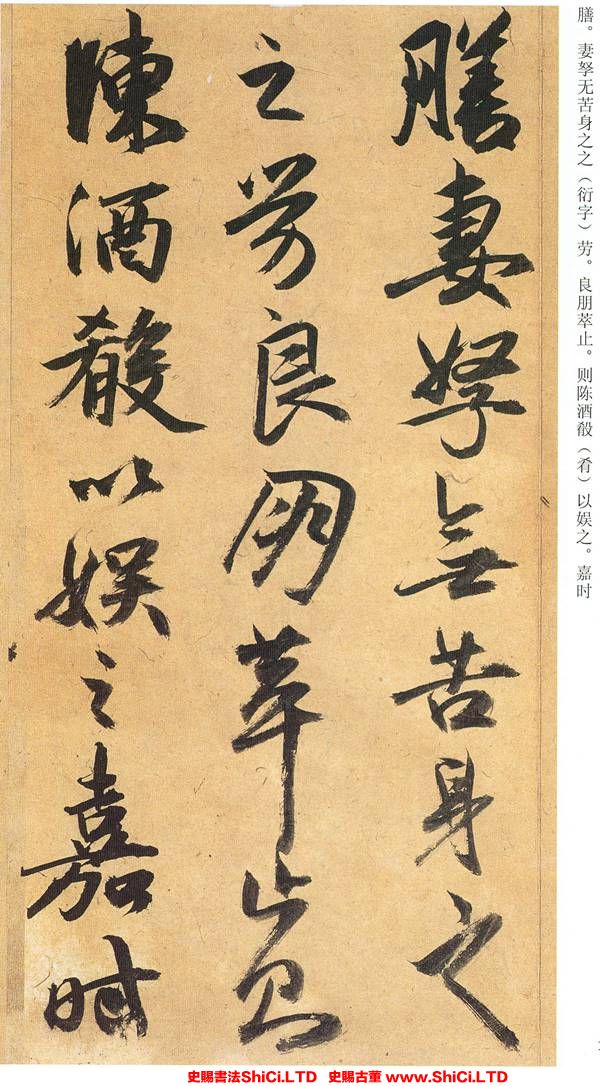 膳。妻孥无苦身之之（衍字）劳。良朋萃止。则陈酒殽（肴）以娱之。嘉时
膳妻孥無苦身之
之勞良朋萃止則
陳酒殽以娛之嘉時
史賜書法ShiCi.LTD 史賜古董 www.ShiCi.LTD